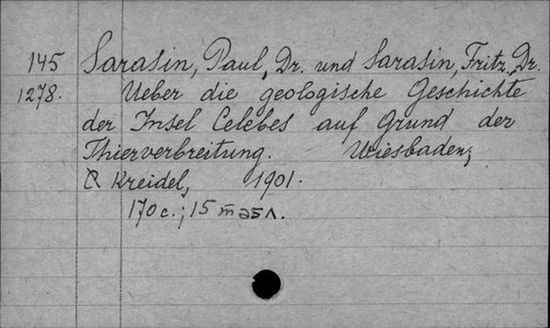 145 Sarasin, Paul, Dr. und Sarasin, Fritz, Dr.
1278. Ueber die geologische Geschichte
der Insel Celebes auf Grund der
Thierverbreitung. Wiesbaden,
Kreidel, 1901.
170 c.; 15